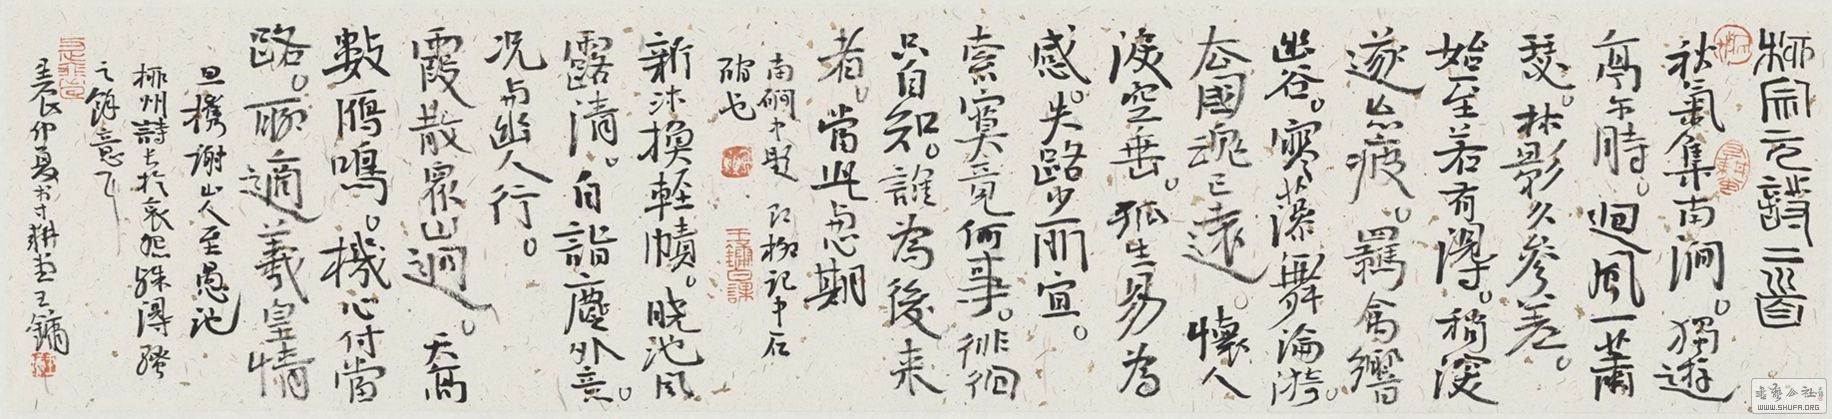 柳宗元詩二首
秋氣集南澗。獨遊
亭午時。迴風一蕭
瑟。林影久參差。
始至若有得。稍深
遂忘疲。羈禽響
幽谷。寒藻舞淪漪。
去國魂已遠。懷人
淚空垂。孤生易為
感。失路少所宜。
索寞竟何事。徘徊
只自知。誰為後来
者。當此与心期
南磵中題 即柳記中石
也
新沐換輕幘。曉池風
露清。自諧塵外意。
况与幽人行。
霞散眾山迥。天高
數鴈鳴。機心付當
路。聊適羲皇情
旦攜謝山人至愚池
柳州詩長於哀怨殊得騷
之餘意
仲夏书 耕堂王鏞
書法公社
WWW.SHUFA.ORG